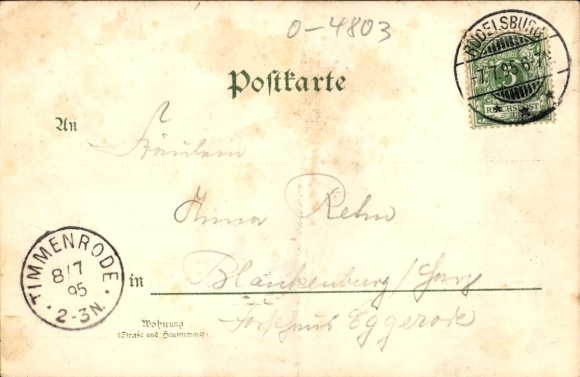 0-4803
RUDELSBURG
7.7.95 6-7N.
REICHSPOST
Postkarte
An
Fräulein
Anna Rehn
TIMMENRODE
8/7
95
2-3N.
in
Blankenburg/Harz
Forsthaus Eggerode
Wohnung
(Straße und Hausnummer)